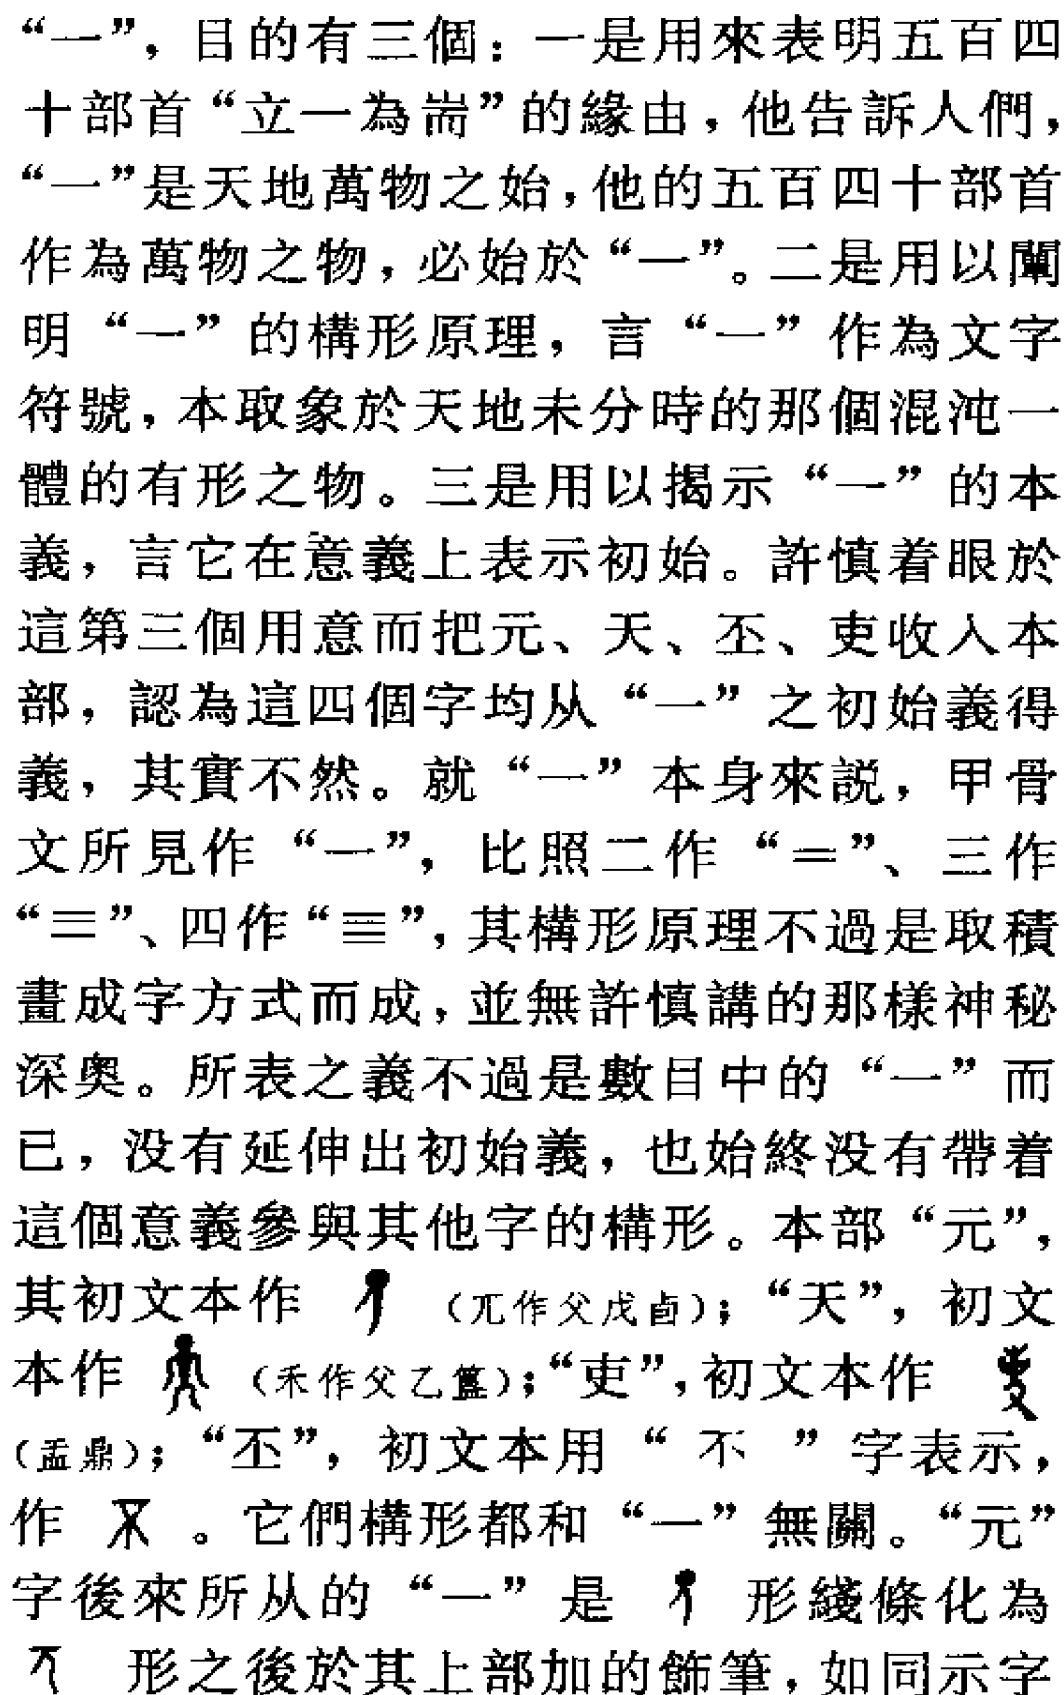 “一”，目的有三個：一是用來表明五百四
十部首“立一為耑”的緣由，他告訴人們，
“一”是天地萬物之始，他的五百四十部首
作為萬物之物，必始於“一”。二是用以闡
明“一”的構形原理，言“一”作為文字
符號，本取象於天地未分時的那個混沌一
體的有形之物。三是用以揭示“一”的本
義，言它在意義上表示初始。許慎着眼於
這第三個用意而把元、天、丕、吏收入本
部，認為這四個字均从“一”之初始義得
義，其實不然。就“一”本身來説，甲骨
文所見作“一”，比照二作“＝”、三作
“三”、四作“亖”，其構形原理不過是取積
畫成字方式而成，並無許慎講的那樣神秘
深奥。所表之義不過是數目中的“一”而
已，没有延伸出初始義，也始終没有帶着
這個意義參與其他字的構形。本部“元”，
其初文本作（兀作父戊卣）；“天”，初文
本作（禾作父乙簋）；“吏”，初文本作
（盂鼎）；“丕”，初文本用“不”字表示，
作。它們構形都和“一”無關。“元”
字後來所从的“一”是形綫條化為
形之後於其上部加的飾筆，如同示字